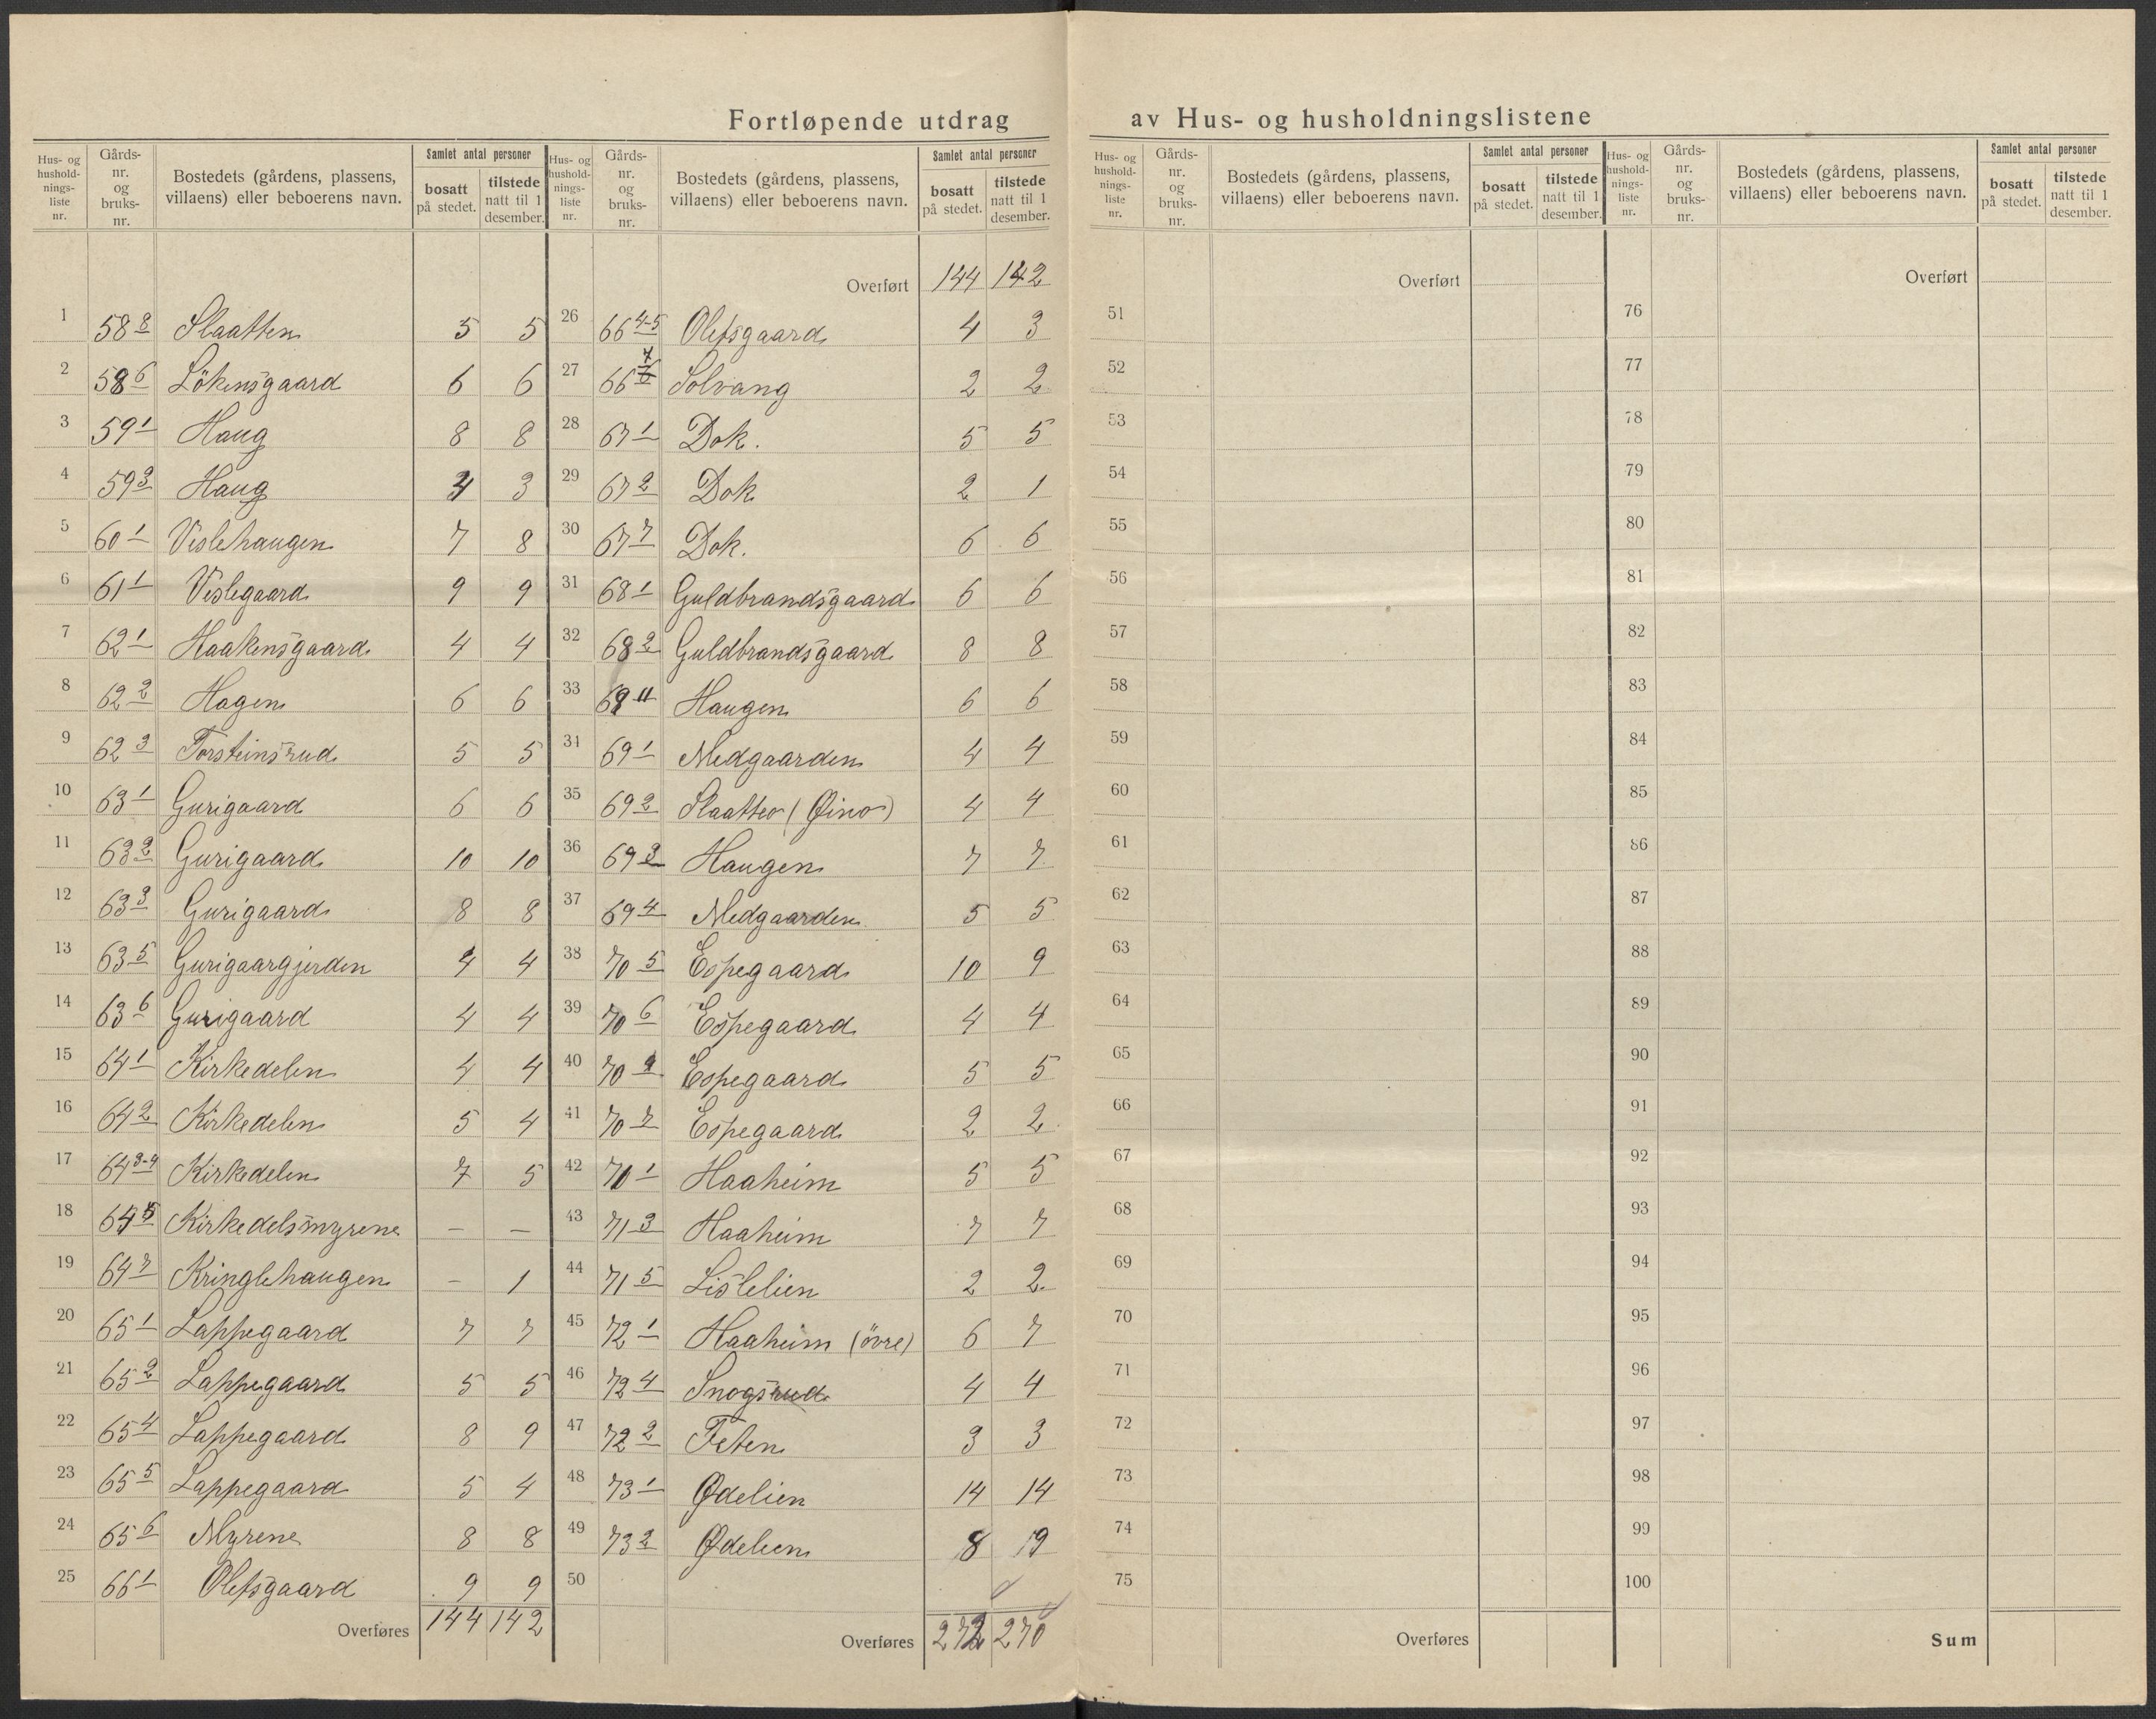 Fortløpende utdrag av Hus- og husholdningslistene
Hus- og husholdningsliste nr. | Gårds-nr. og bruks-nr. | Bostedets (gårdens, plassens, villaens) eller beboerens navn. | Samlet antal personer bosatt på stedet. | tilstede natt til 1 desember.
1 58 8 Slaatten 5 5
2 58 6 Lökensgaard 6 6
3 59 1 Haug 8 8
4 59 3 Haug 3
5 60 1 Vislehaugen 7 8
6 61 1 Vislegaard 9 9
7 62 1 Haakensgaard 4 4
8 62 2 Hagen 6 6
9 62 3 Torsteinsrud 5 5
10 63 1 Gurigaard 6 6
11 63 2 Gurigaard 10 10
12 63 3 Gurigaard 8 8
13 63 5 Gurigaargjerden 4 4
14 63 6 Gurigaard 4 4
15 64 1 Kirkedelen 4 4
16 64 2 Kirkedelen 5 4
17 64 3-4 Kirkedelen 7 5
18 64 5 Kirkedelsmyrene — —
19 64 7 Kringlehaugen - 1
20 65 1 Lappegaard 7 7
21 65 2 Lappegaard 5 5
22 65 4 Lappegaard 8 9
23 65 5 Lappegaard 5 4
24 65 6 Myrene 8 8
25 66 1 Olefsgaard 9 9
Overføres 144 142
Hus- og husholdningsliste nr. | Gårds-nr. og bruks-nr. | Bostedets (gårdens, plassens, villaens) eller beboerens navn. | Samlet antal personer bosatt på stedet. | tilstede natt til 1 desember.
Overført 144 142
26 66 4-5 Olefsgaard 4 3
27 66 7 Solvang 2 2
28 67 1 Dok. 5 5
29 67 2 Dok 2 1
30 67 7 Dok. 6 6
31 68 1 Guldbrandsgaard 6 6
32 68 2 Guldbrandsgaard 8 8
33 68 11 Haugen 6 6
34 69 1 Medgaarden 4 4
35 69 2 Slaatten (Øino) 4 4
36 69 3 Haugen 7 7
37 69 4 Medgaarden 5 5
38 70 5 Espegaard 10 9
39 70 6 Espegaard 4 4
40 70 Espegaard 5 5
41 70 7 Espegaard 2 2
42 71 1 Haaheim 5 5
43 71 3 Haaheim 7 7
44 71 5 Lislelien 2 2
45 72 1 Haaheim (övre) 6 7
46 72 4 Snogsrud 4 4
47 72 2 Feten 3 3
48 73 1 Ødelien 14 14
49 73 2 Ødelien 8 19
50
Overføres 272 270
Hus- og husholdningsliste nr. | Gårds-nr. og bruks-nr. | Bostedets (gårdens, plassens, villaens) eller beboerens navn. | Samlet antal personer bosatt på stedet. | tilstede natt til 1 desember.
Overført
51
52
53
54
55
56
57
58
59
60
61
62
63
64
65
66
67
68
69
70
71
72
73
74
75
Overføres
Hus- og husholdningsliste nr. | Gårds-nr. og bruks-nr. | Bostedets (gårdens, plassens, villaens) eller beboerens navn. | Samlet antal personer bosatt på stedet. | tilstede natt til 1 desember.
Overført
76
77
78
79
80
81
82
83
84
85
86
87
88
89
90
91
92
93
94
95
96
97
98
99
100
Sum